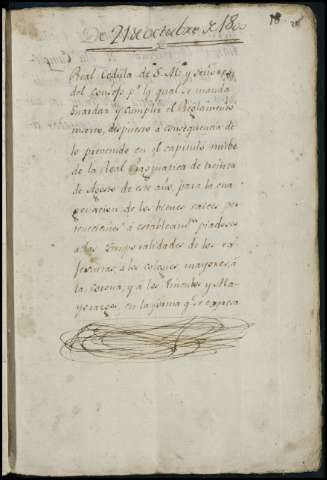 De 21 de octubre de 1800
Real Cedula de S. M. y Señores
del Consejo pr. la qual se manda
Guardar y Cumplir el Reglamento
inserto, dispuesto á conseqüencia de
lo prevenido en el capitulo nuebe
de la Real Pragmatica de treinta
de Agosto de este año, para la ena
genacion de los bienes raices per
tenecientes á establecimtos. piadosos
a las Temporalidades de los ex
Jesuitas, a los colegios mayores, á
la corona, y á los Vinculos y Ma
yorazgos, en la forma qe. se expresa